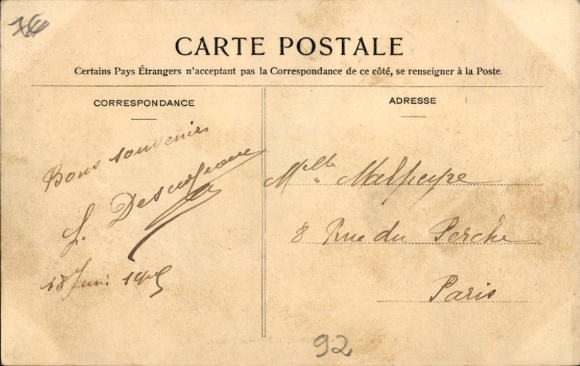 CARTE POSTALE
Certains Pays Étrangers n'acceptant pas la Correspondance de ce côté, se renseigner à la Poste.
CORRESPONDANCE
ADRESSE
Bons souvenirs
18 Juin
Melle
8 Rue du Perche
Paris
92